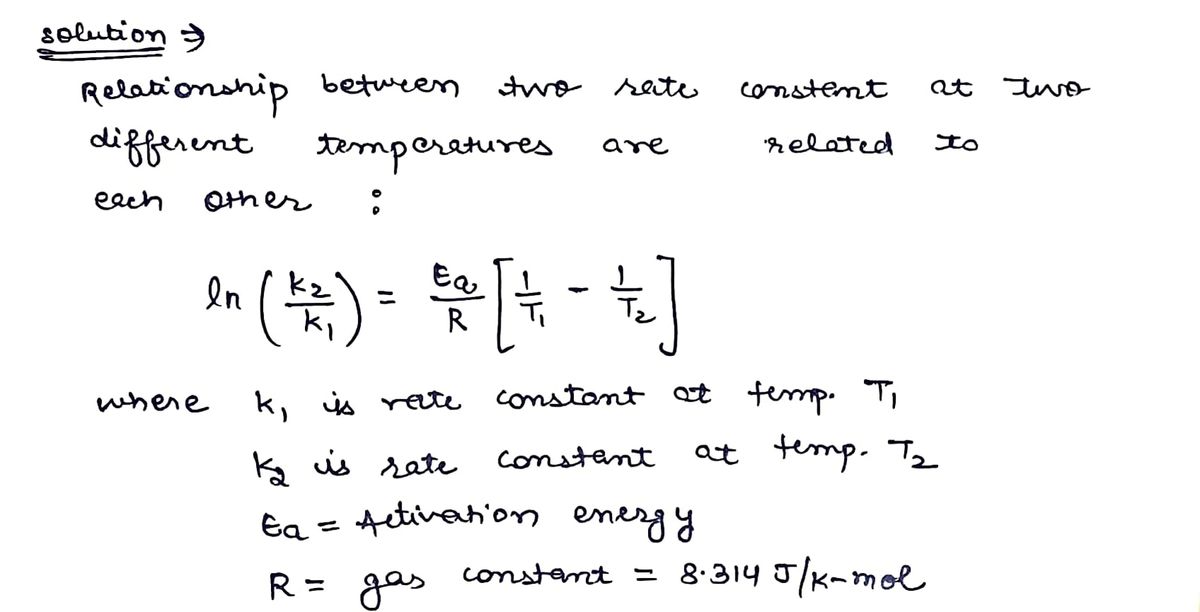 solution ⇒
Relationship between two rate constent at two
different temperatures are related to
each other :
ln (k₂/k₁) = Ea/R [1/T₁ - 1/T₂]
where k₁ is rate constant at temp. T₁
k₂ is rate constant at temp. T₂
Ea = Activation energy
R = gas constant = 8.314 J/K-mol